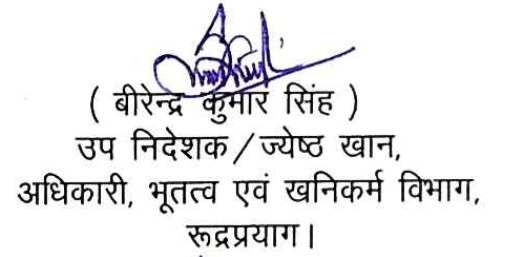 ( बीरेन्द्र कुमार सिंह )
उप निदेशक/ज्येष्ठ खान,
अधिकारी, भूतत्व एवं खनिकर्म विभाग,
रूद्रप्रयाग।